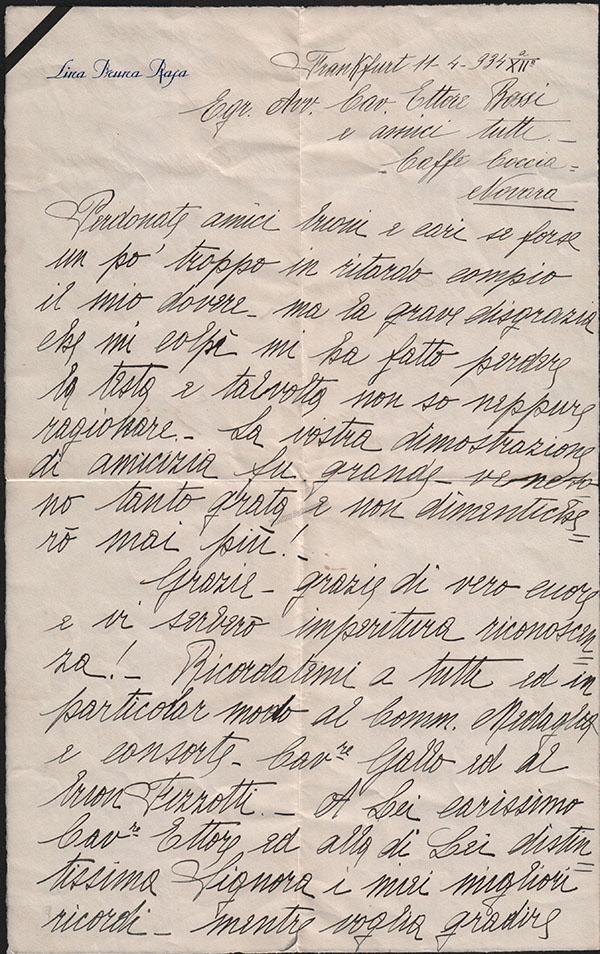 Lina Bruna Rasa
Frankfurt 11-4-934 XIIº
Egr. Avv. Cav. Ettore Rossi
e amici tutti -
- Caffè Coccia -
Novara
Perdonate amici buoni e cari se forse
un po' troppo in ritardo compio
il mio dovere - ma la grave disgrazia
che mi colpì mi ha fatto perdere
la testa e talvolta non so neppure
ragionare. - La vostra dimostrazione
di amicizia fu grande - ve ne so
no tanto grata e non dimentiche=
rò mai più!
Grazie - grazie di vero cuore
e vi serberò imperitura riconoscen=
za! - Ricordatemi a tutti ed in
particolar modo al Comm. Medaglia
e consorte - Cav.re Gallo ed al
buon Fizzotti. - A Lei carissimo
Cav.re Ettore ed alla di Lei distin=
tissima Signora i miei migliori
ricordi - mentre voglia gradire